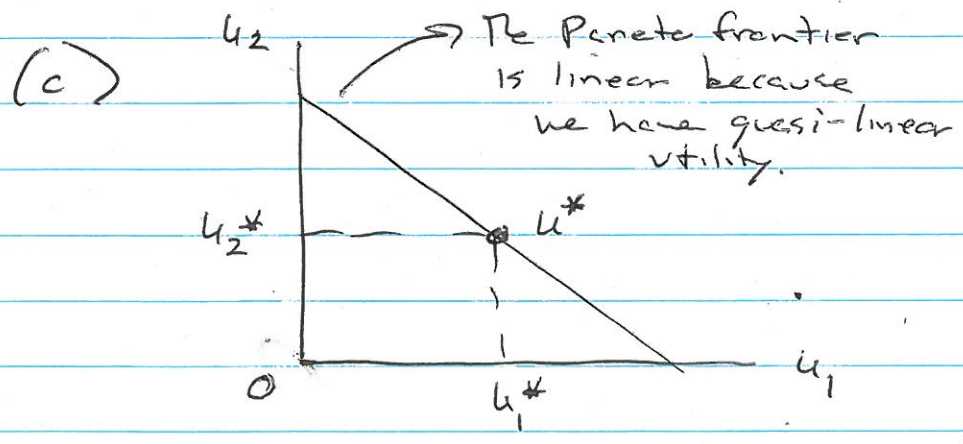 (c)
u₂
The Pareto frontier
is linear because
we have quasi-linear
utility.
u₂*
u*
0
u₁*
u₁